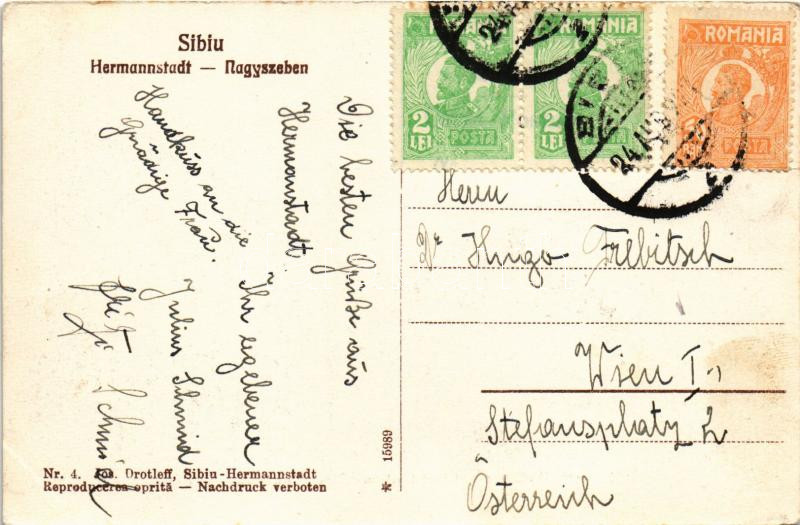 Sibiu
Hermannstadt — Nagyszeben
Die besten Grüße aus
Hermanstadt.
Ihr ergebener
Julius Schmid
Handküss an die
Gnädige Frau.
ROMANIA
2
LEI
POSTA
ROMANIA
2
LEI
POSTA
ROMANIA
24
24
Herrn
Dr Hugo Trebitsch
Wien I.
Stefansplatz 2
Österreich
* 15989
Nr. 4. Jos. Drotleff, Sibiu-Hermannstadt
Reproducerea oprită — Nachdruck verboten